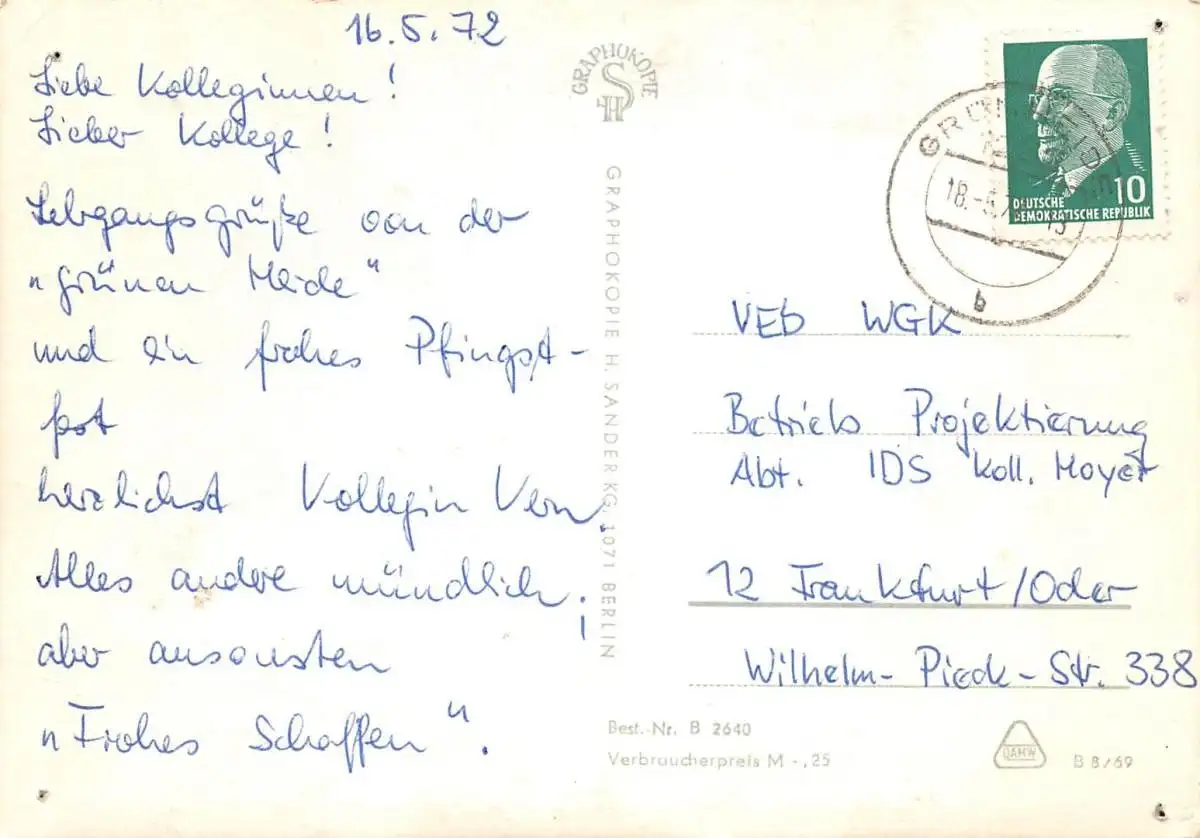 16.5.72
Liebe Kolleginnen!
Lieber Kollege!
Lehrgangsgrüße von der
"Grünen Heide"
und ein frohes Pfingst-
fest
herzlichst Kollegin Vera.
Alles andere mündlich!
aber ansonsten
"Frohes Schaffen".
GRAPHOKOPIE
SH
GRAPHOKOPIE H. SANDER KG. 1071 BERLIN
Best.-Nr. B 2640
Verbraucherpreis M -,25
10
DEUTSCHE
DEMOKRATISCHE REPUBLIK
18.-5.7
b
VEB WGK
Betrieb Projektierung
Abt. IDS Koll. Moyer
12 Frankfurt/Oder
Wilhelm-Pieck-Str. 338
DAMW
B 8/69